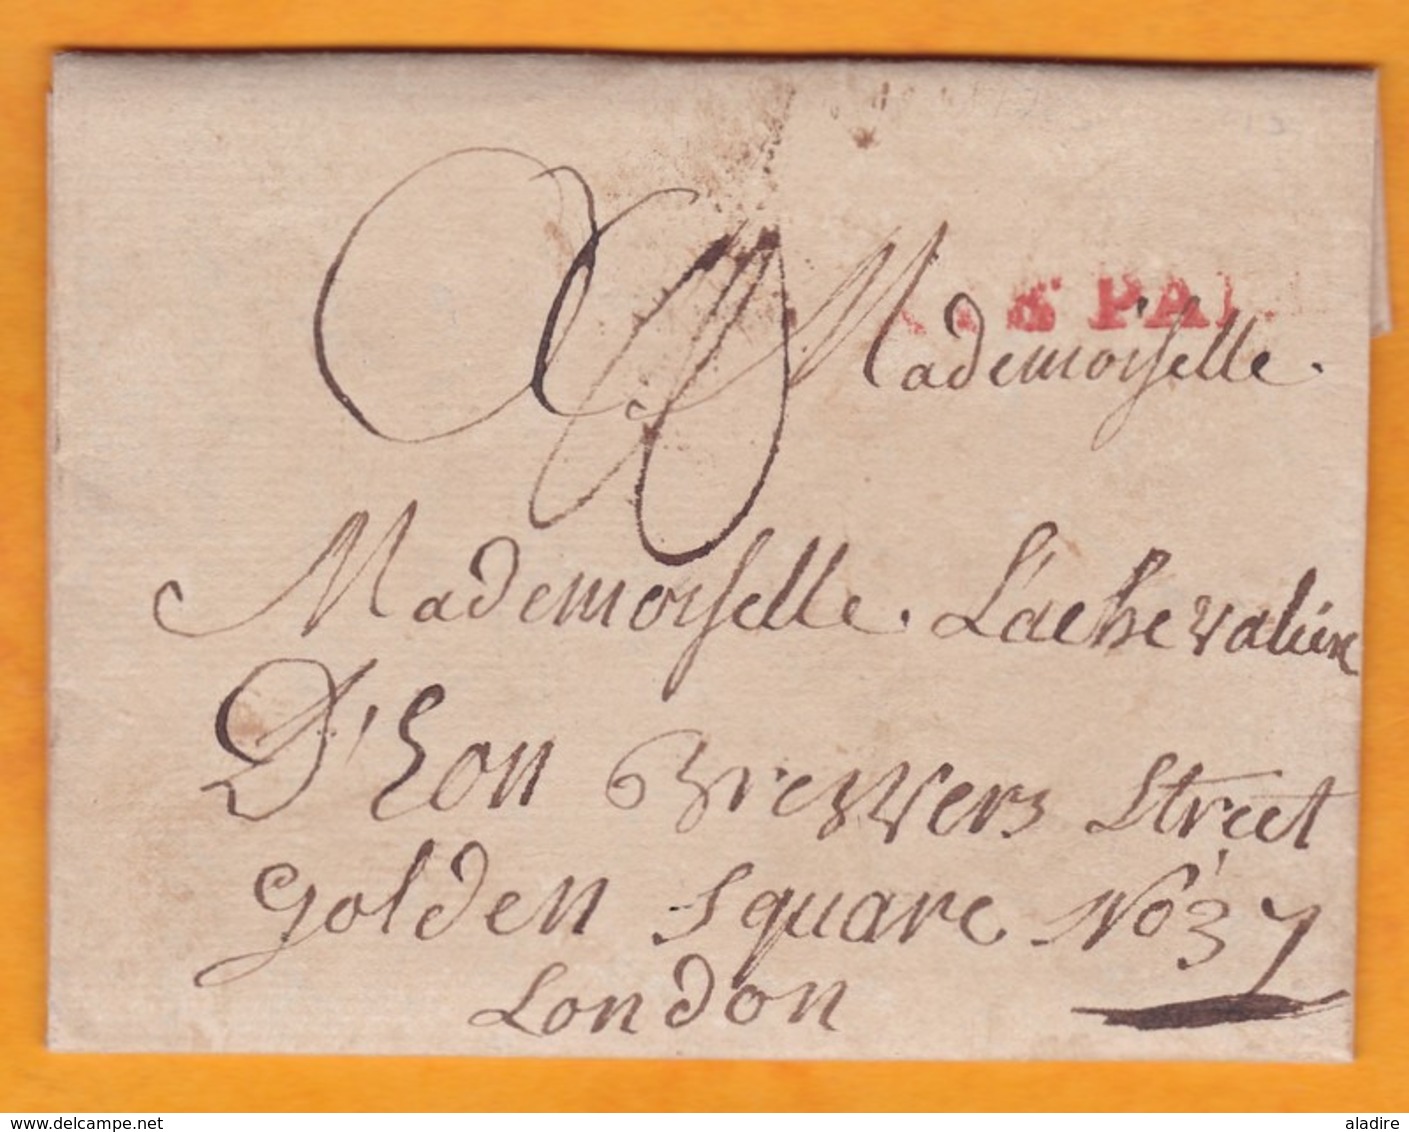 PAI
Mademoiselle.
Mademoiselle. Lachevaliere
D'Eon Brewers Street
golden square No 37
London
delcampe.net
aladire